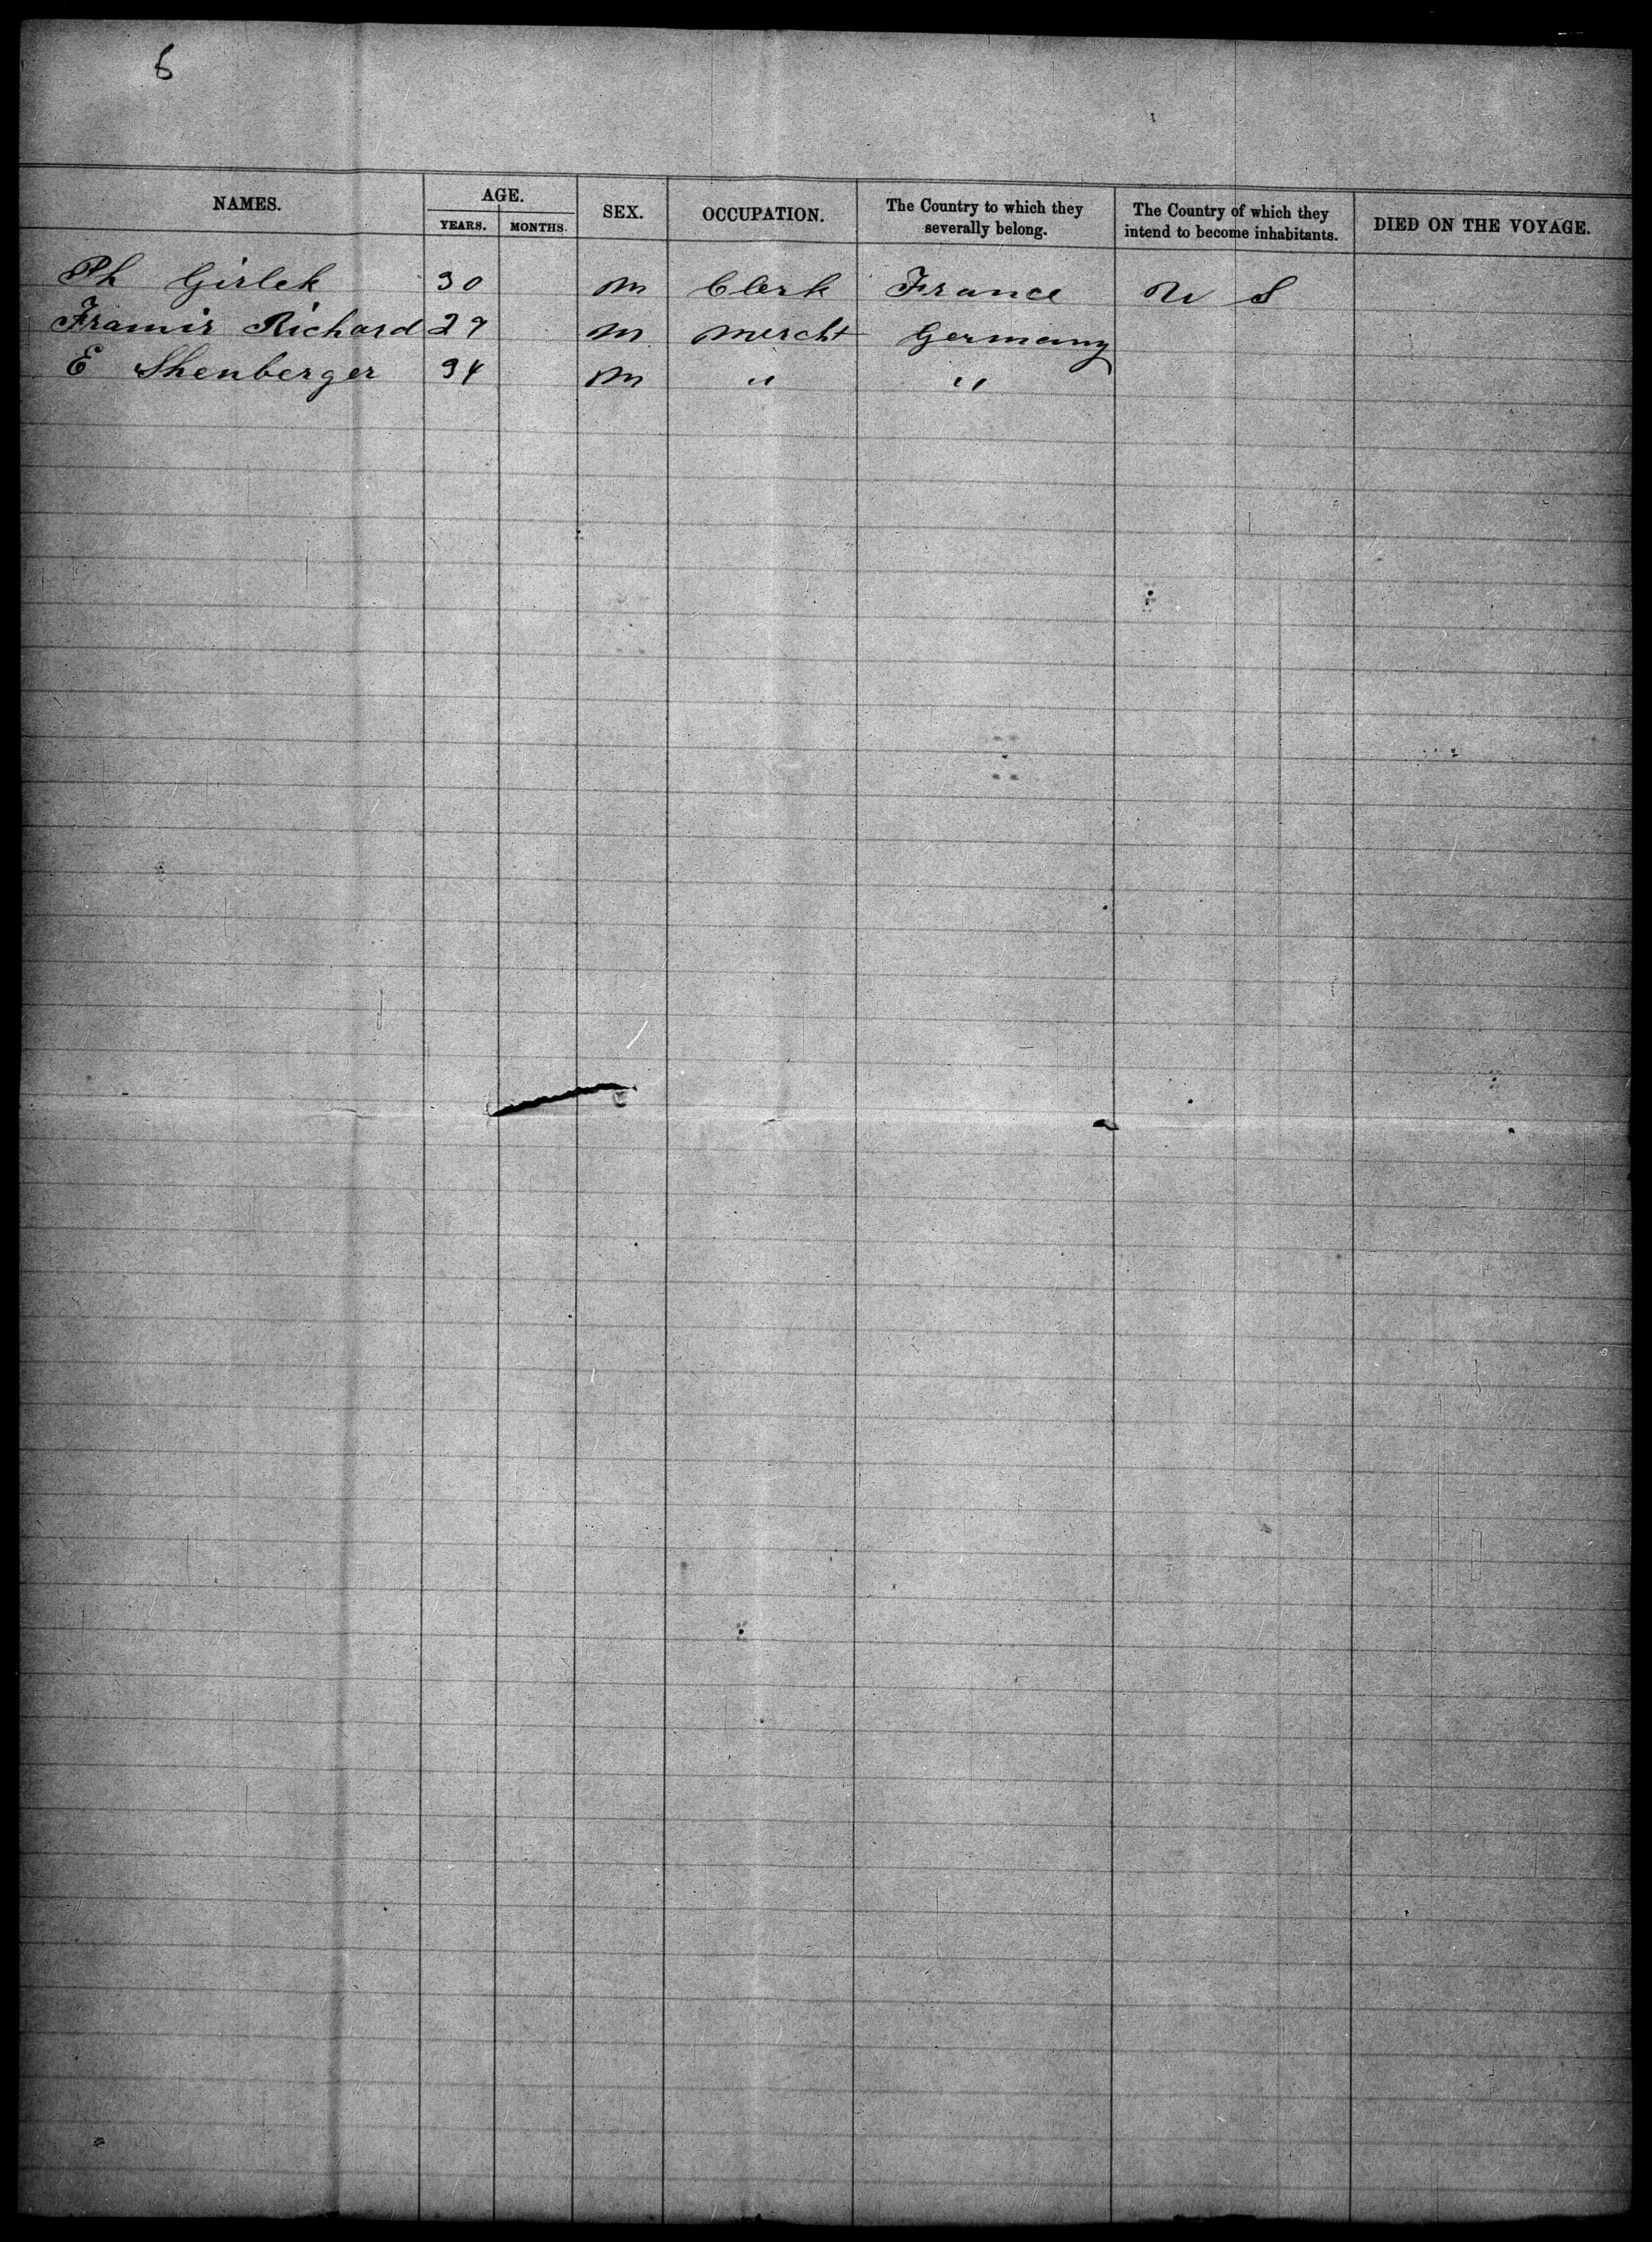 6
NAMES. AGE. SEX. OCCUPATION. The Country to which they severally belong. The Country of which they intend to become inhabitants. DIED ON THE VOYAGE.
YEARS. MONTHS.
Ph Girlek 30 m Clerk France U S
Framir Richard 29 m Mercht Germany
E Shenberger 34 m " "